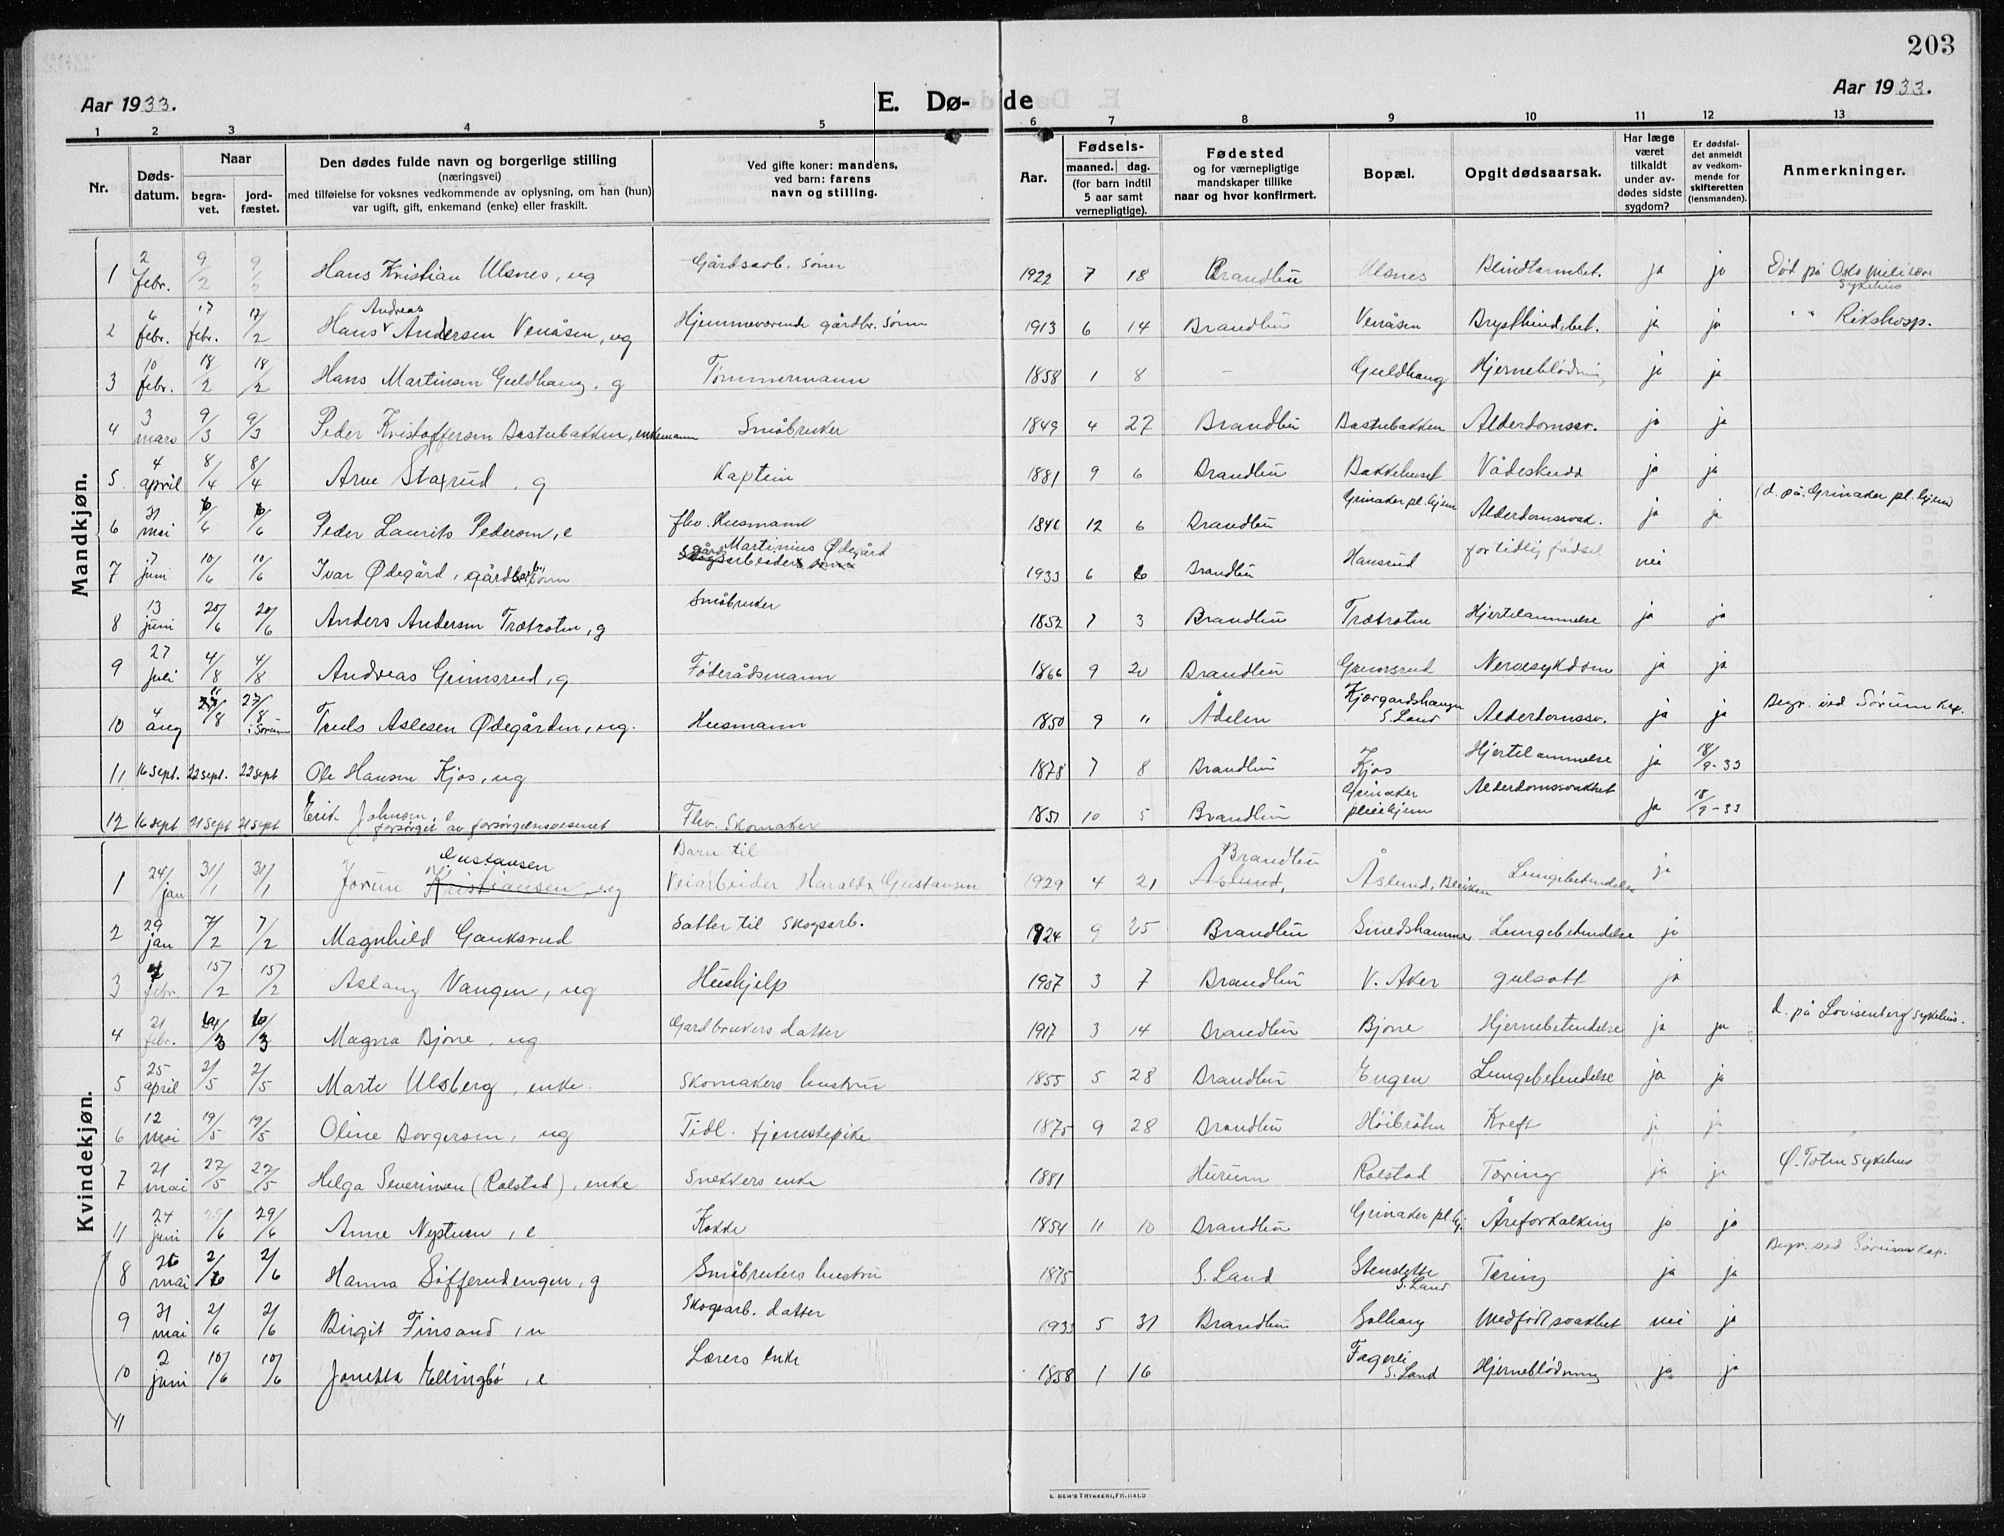 203
Aar 1933.
E. Dø-
de
Aar 1933.
1 2 3 4 5 6 7 8 9 10 11 12 13
Nr.
Døds-
datum.
Naar
begra-
vet.
jord-
fæstet.
Den dødes fulde navn og borgerlige stilling
(næringsvei)
med tilføielse for voksnes vedkommende av oplysning, om han (hun)
var ugift, gift, enkemand (enke) eller fraskilt.
Ved gifte koner: mandens,
ved barn: farens
navn og stilling.
Aar.
Fødsels-
maaned. dag.
(for barn indtil
5 aar samt
vernepligtige).
Fødested
og for værnepligtige
mandskaper tillike
naar og hvor konfirmert.
Bopæl.
Opgit dødsaarsak.
Har læge
været
tilkaldt
under av-
dødes sidste
sygdom?
Er dødsfal-
det anmeldt
av vedkom-
mende for
skifteretten
(lensmanden).
Anmerkninger.
Mandkjøn.
1 2 febr. 9/2 9/2 Hans Kristian Ulsnes, ug Gårdsarb. sønn 1922 7 18 Brandbu Ulsnes Blindtarmbet. ja ja Død på Oslo Militære Sykehus
2 6 febr. 17 febr. 17/2 Hans Andreas Andersen Venåsen, ug Hjemmeværende gårdbr. sønn 1913 6 14 Brandbu Venåsen Brysthindebet. ja ja " " Rikshosp.
3 10 febr. 18/2 18/2 Hans Martinsen Guldhaug, g Tømmermann 1858 1 8 - Guldhaug Hjerneblødning ja ja
4 3 mars 9/3 9/3 Peder Kristoffersen Bastubakken, enkemann Småbruker 1849 4 27 Brandbu Bastubakken Alderdomssv. ja ja
5 4 april 8/4 8/4 Arne Staxrud, g Kaptein 1881 9 6 Brandbu Bakkehuset Vådeskudd ja ja
6 31 mai 6/6 6/6 Peder Laurits Pedersen, e flv. Husmann 1846 12 6 Brandbu Grinaker pl. hjem Alderdomssvak. ja ja (d. på Grinaker pl. hjem)
7 7 juni 10/6 10/6 Ivar Ødegård, gårdbr. sønn Martinius Ødegård 1933 6 6 Brandbu Hansrud for tidlig fødsel nei
8 13 juni 20/6 20/6 Anders Andersen Trætroten, g Småbruker 1852 7 3 Brandbu Træroten Hjertelammelse ja ja
9 27 juli 4/8 4/8 Andreas Grimsrud, g Føderådsmann 1866 9 20 Brandbu Grimsrud Nervesykdom ja ja
10 4 aug 11/8 27/8 i Sørum Truls Aslesen Ødegården, ug. Husmann 1850 9 " Ådalen Kjærgardshaugen S. Land Alderdomssv. ja ja Begr. ved Sørum kap.
11 16 sept. 22 sept. 22 sept Ole Hansen Kjos, ug 1878 7 8 Brandbu Kjos Hjertelammelse ja 18/9-33
12 16 sept 21 sept 21 sept Erik Johnsen, e Flv. Skomaker 1851 10 5 Brandbu Grinaker pleiehjem Alderdomssvakhet ja 18/9-33
forsørget av forsørgelsesvesenet
Kvindekjøn.
1 24/jan 31/1 31/1 Jorun Gustavsen Kristiansen, ug Barn til Veiarbeider Harald Gustavsen 1929 4 21 Brandbu Åslund, Åslund, Bleiken Lungebetendelse ja
2 29 jan 7/2 7/2 Magnhild Gauksrud Datter til Skogsarb. 1924 9 25 Brandbu Smedshammer Lungebetendelse ja
3 febr. 15/2 15/2 Aslaug Vangen, ug Hushjelp 1907 3 7 Brandbu V. Aker gulsott ja
4 21 febr. /3 /3 Magna Bjone, ug Gardbrukers datter 1917 3 14 Brandbu Bjone Hjernebetendelse ja ja d. på Lovisenberg sykehus.
5 25 april 2/5 2/5 Marte Ulsberg, enke. Skomakers hustru 1855 5 28 Brandbu Engen Lungebetendelse ja ja
6 12 mai 19/5 19/5 Oline Borgersen, ug Tidl. tjenestepike 1875 9 28 Brandbu Høibråten Kreft ja ja
7 21 mai 27/5 27/5 Helga Severinsen (Rolstad), enke Snekkers enke 1881 Hurum Rolstad Tæring ja ja Ø. Toten sykehus
11 24 juni 29/6 29/6 Anne Nystuen, e Kokke 1854 11 10 Brandbu Grinaker pl. hj. Åreforkalkning ja ja
8 26 mai 2/6 2/6 Hanna Søfferudengen, g Småbrukers hustru 1875 S. Land Stenslette S. Land Tæring ja ja Begr. ved Sørum kap.
9 31 mai 2/6 2/6 Birgit Finsand, u Skogsarb. datter 1933 5 31 Brandbu Solhaug Medfødt svakhet nei ja
10 2 juni 10/6 10/6 Jonetta Ellingbø, e Lærers enke 1858 1 16 Fagerli S. Land Hjerneblødning ja ja
11